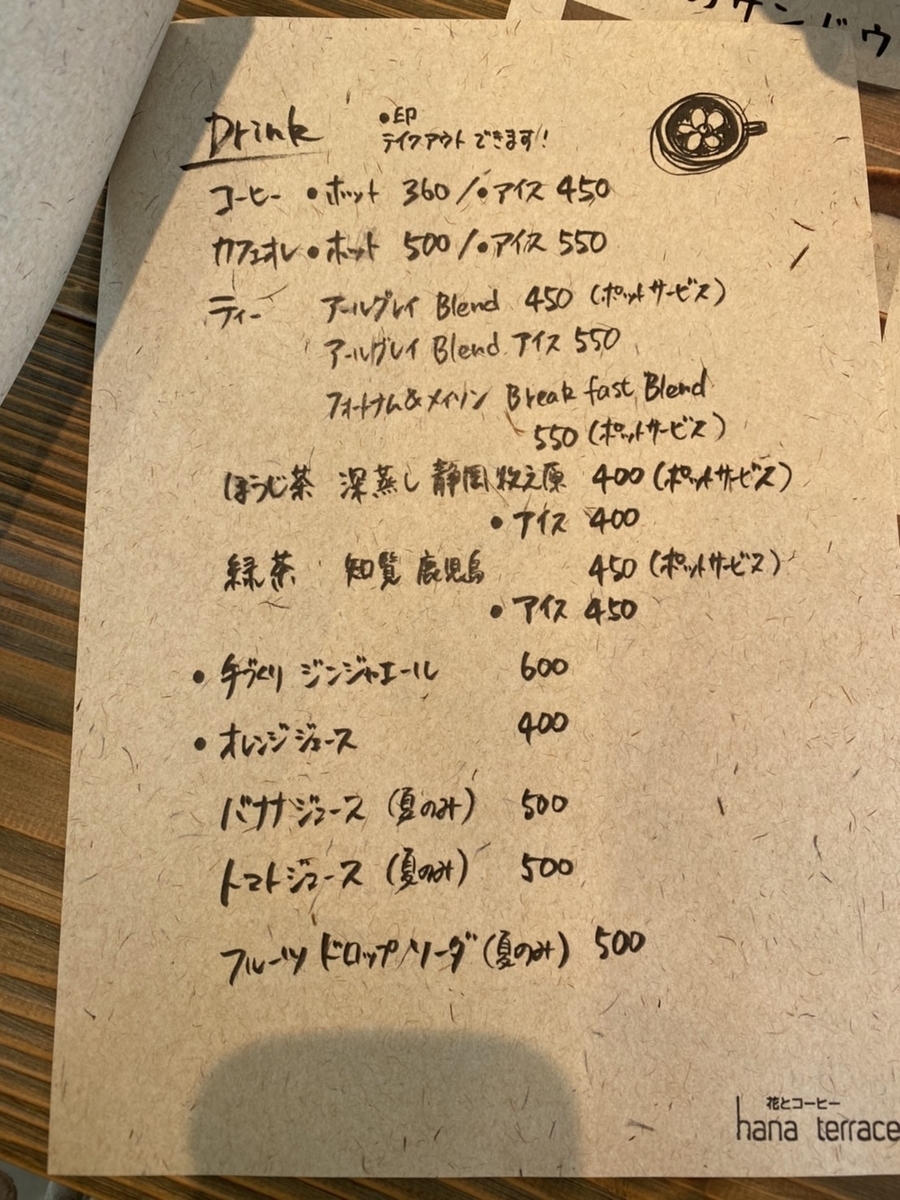 のサンドウ
Drink
●印
テイクアウトできます!
コーヒー ●ホット 360 / ●アイス 450
カフェオレ ●ホット 500 / ●アイス 550
ティー アールグレイ Blend 450 (ポットサービス)
アールグレイ Blend アイス 550
フォートナム&メイソン Breakfast Blend
550 (ポットサービス)
ほうじ茶 深蒸し 静岡牧之原 400 (ポットサービス)
● アイス 400
緑茶 知覧 鹿児島 450 (ポットサービス)
● アイス 450
● 手づくり ジンジャエール 600
● オレンジジュース 400
バナナジュース (夏のみ) 500
トマトジュース (夏のみ) 500
フルーツ ドロップソーダ (夏のみ) 500
花とコーヒー
hana terrace